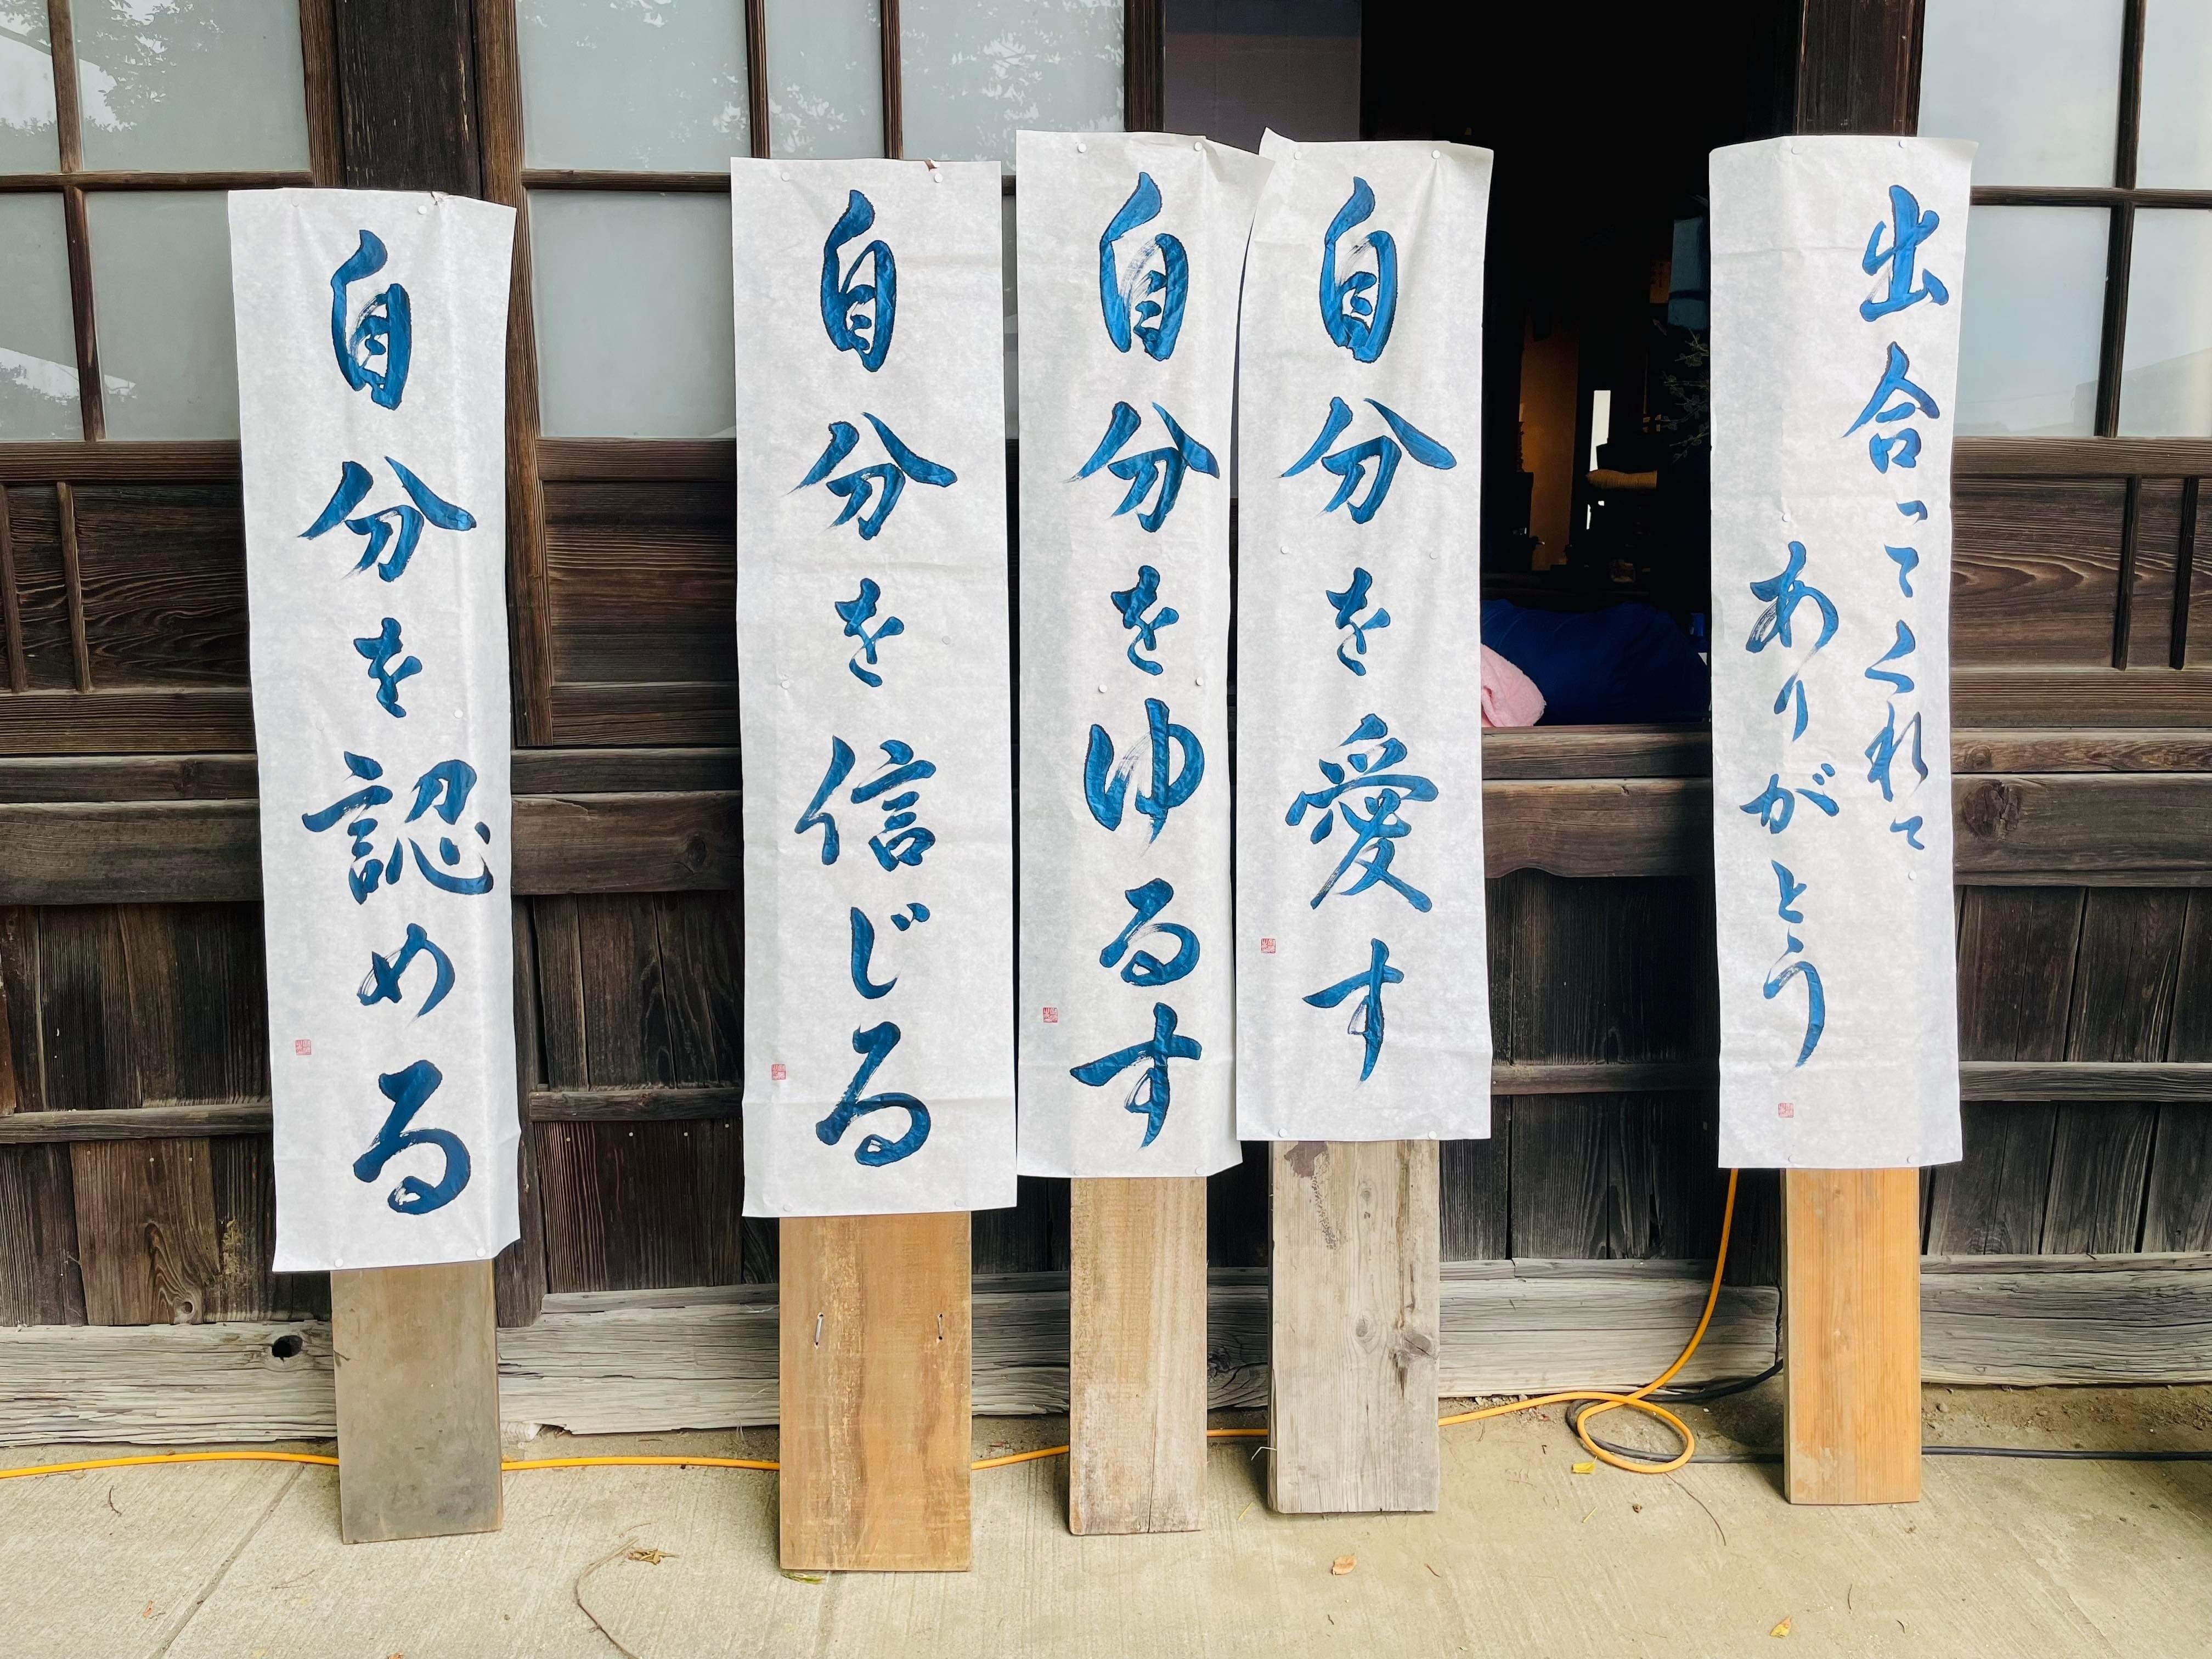 出合ってくれて
ありがとう
自分を愛す
自分をゆるす
自分を信じる
自分を認める